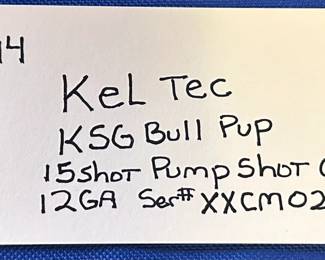 14
Kel Tec
KSG Bull Pup
15shot Pump Shot
12GA Ser# XXCM02